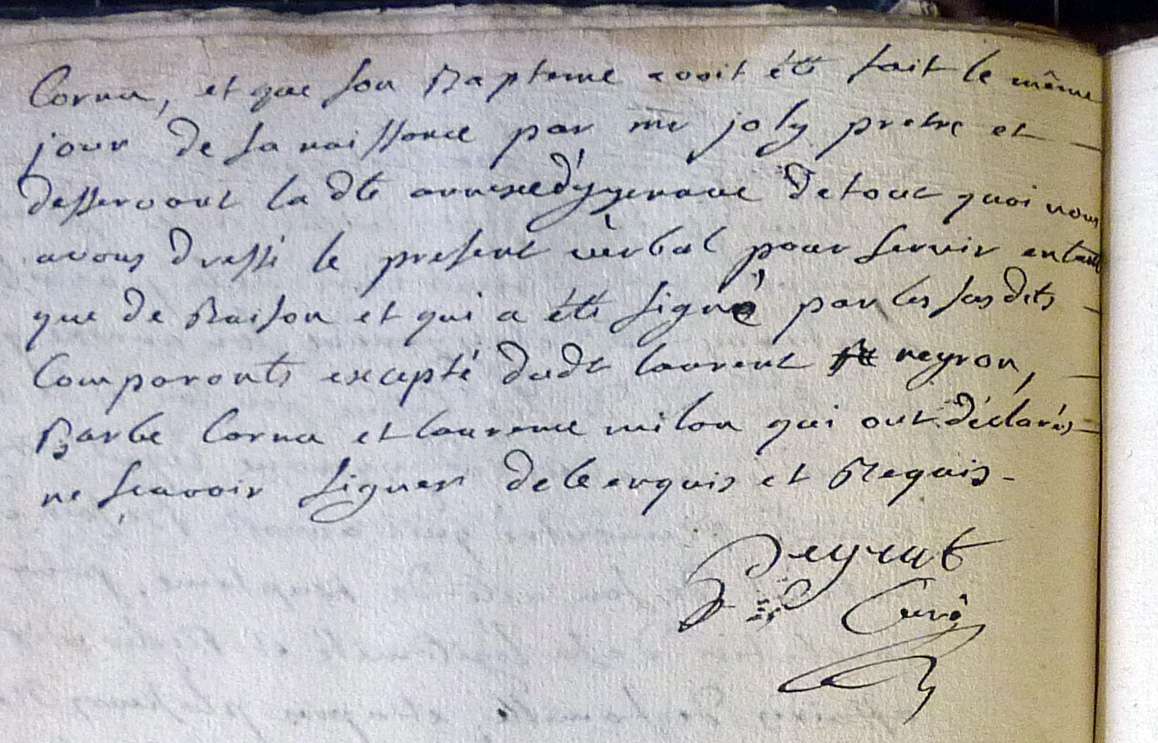 Cornu, et que son Bapteme avoit été fait le même
jour de sa naissance par mre joly pretre et
desservant la dte annexe d'yzernave de tout quoi nous
avons dressé le present verbal pour servir entant
que de Raison et qui a été signé par les susdits
Comparants excepté dudt laurent neyron,
Barbe Cornu et laurence milon qui ont déclarés
ne scavoir signer de ce enquis et Requis.
Peyrat
Curé